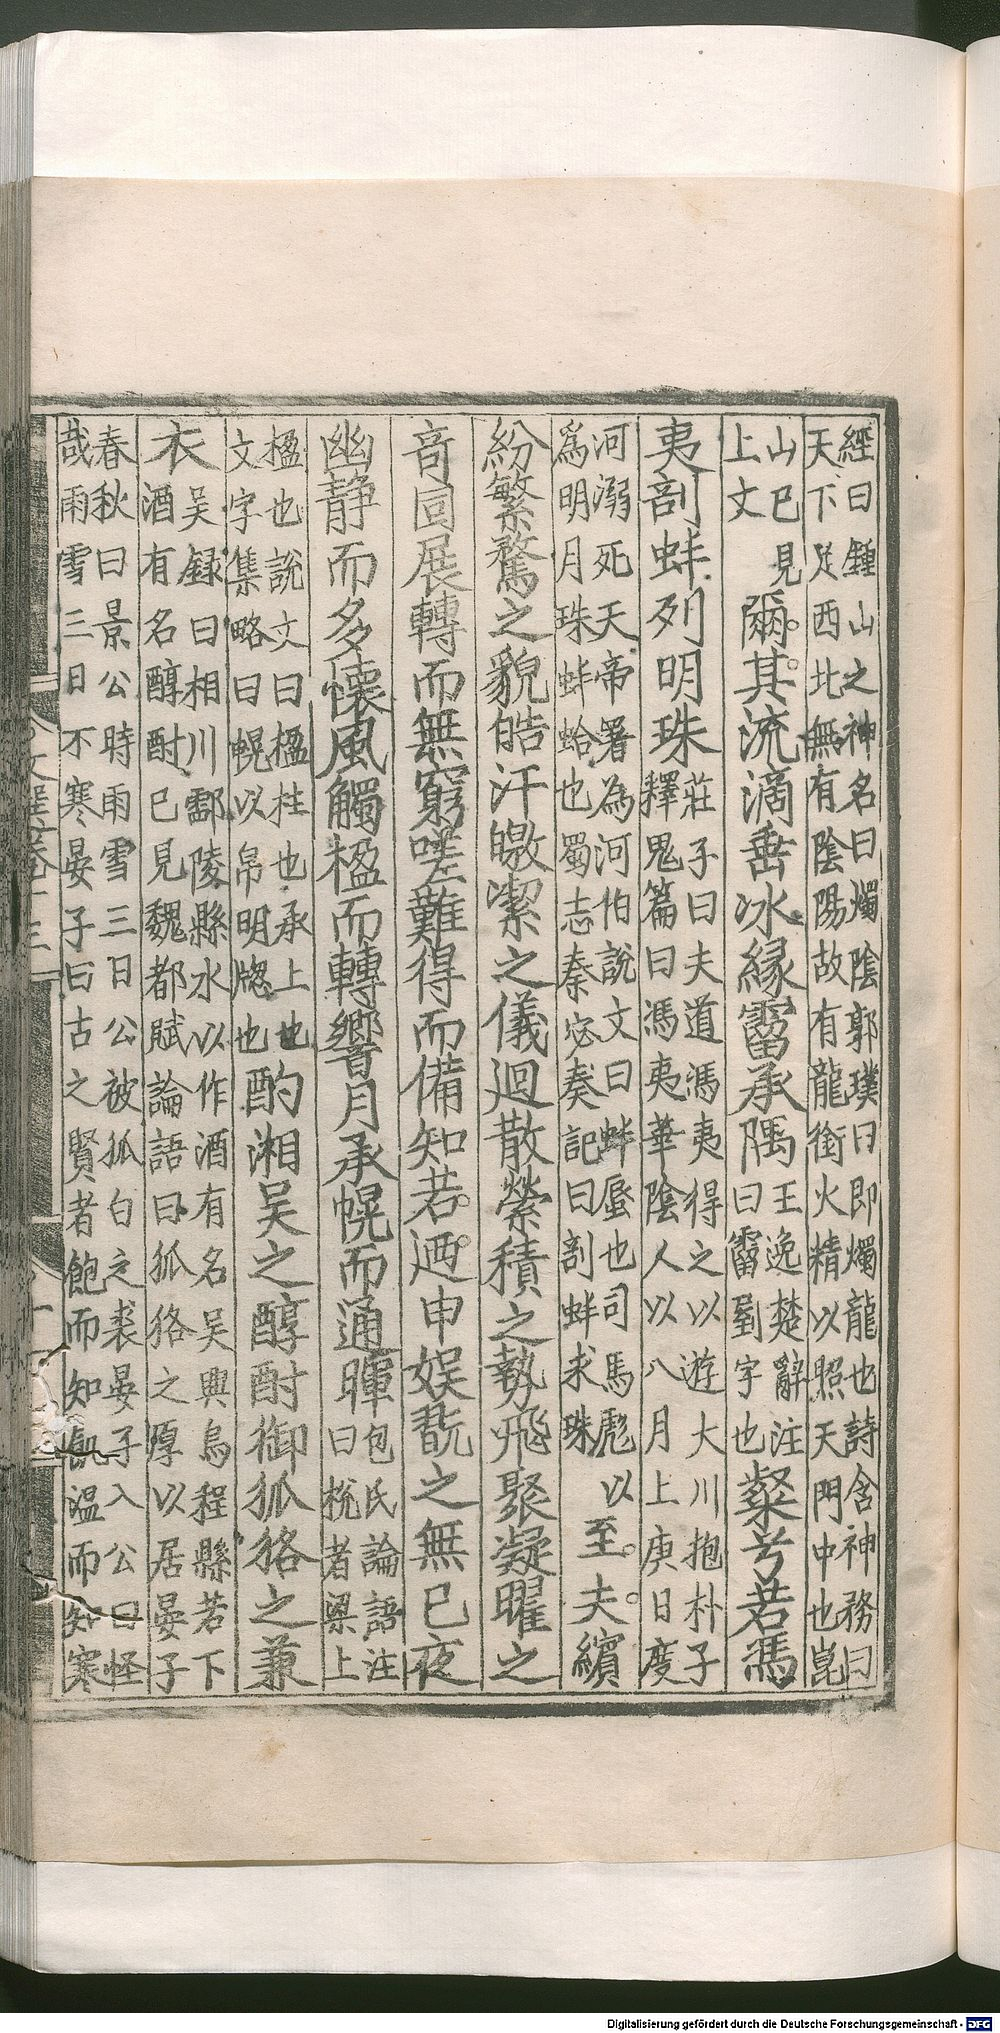 經曰鍾山之神名曰燭陰郭璞曰即燭龍也詩含神務曰
天下足西北無有陰陽故有龍銜火精以照天門中也崑
山巳見
上文
爾其流滴垂冰緣霤承隅
王逸楚辭注
曰霤劉字也
粲兮若馮
夷剖蚌列明珠
莊子曰夫道馮夷得之以遊大川抱朴子
釋鬼篇曰馮夷華陰人以八月上庚日度
河溺死天帝署為河伯說文曰蚌蜃也司馬彪以
為明月珠蚌蛤也蜀志秦宓奏記曰剖蚌求珠
至夫繽
紛繁騖之貌皓汗皦潔之儀迴散縈積之勢飛聚凝曜之
奇固展轉而無窮嗟難得而備知若迺申娛翫之無巳夜
幽靜而多懷風觸楹而轉響月承幌而通暉
包氏論語注
曰梲者梁上
楹也說文曰楹柱也承上也
文字集略曰幌以帛明牕也
酌湘吳之醇酎御狐狢之兼
衣
吳録曰相川酃陵縣水以作酒有名吳興烏程縣若下
酒有名醇酎巳見魏都賦論語曰狐狢之厚以居晏子
春秋曰景公時雨雪三日公被狐白之裘晏子入公曰怪
哉雨雪三日不寒晏子曰古之賢者飽而知飢溫而知寒
Digitalisierung gefördert durch die Deutsche Forschungsgemeinschaft - DFG